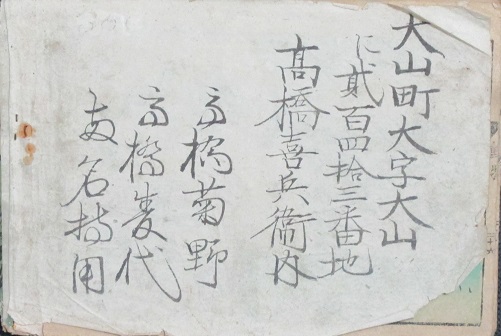 大山町大字大山
に貳百四拾三番地
高橋喜兵衛内
高橋菊野
高橋麦代
両名持用